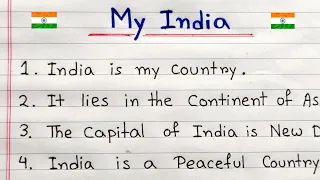 My India
1. India is my Country.
2. It lies in the Continent of As
3. The Capital of India is New D
4. India is a Peaceful Country